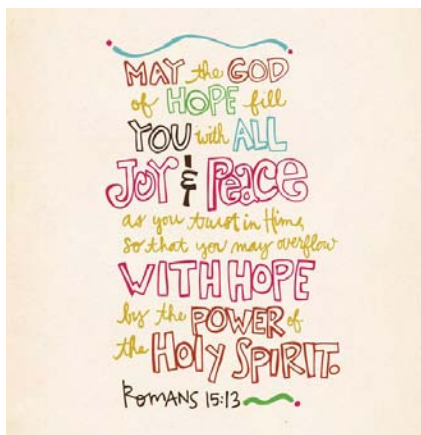 MAY the GOD
of HOPE fill
YOU with ALL
JOY & Peace
as you trust in Him,
so that you may overflow
WITH HOPE
by the POWER of
the HOLY SPIRIT.
ROMANS 15:13